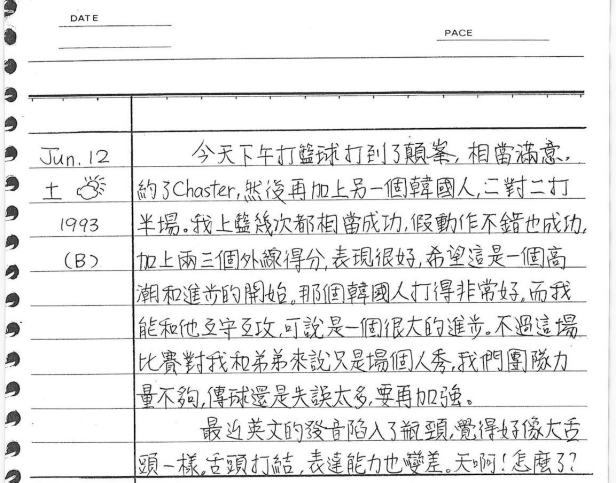 DATE
PACE
Jun. 12
今天下午打籃球打到了顛峯，相當滿意，
土
約了Chaster，然後再加上另一個韓國人，二對二打
1993
半場。我上籃幾次都相當成功，假動作不錯也成功，
(B)
加上兩三個外線得分，表現很好，希望這是一個高
潮和進步的開始。那個韓國人打得非常好，而我
能和他互守互攻，可說是一個很大的進步。不過這場
比賽對我和弟弟來說只是場個人秀，我們團隊力
量不夠，傳球還是失誤太多，要再加強。
最近英文的發音陷入了瓶頸，覺得好像大舌
頭一樣。舌頭打結，表達能力也變差。天啊！怎麼了？